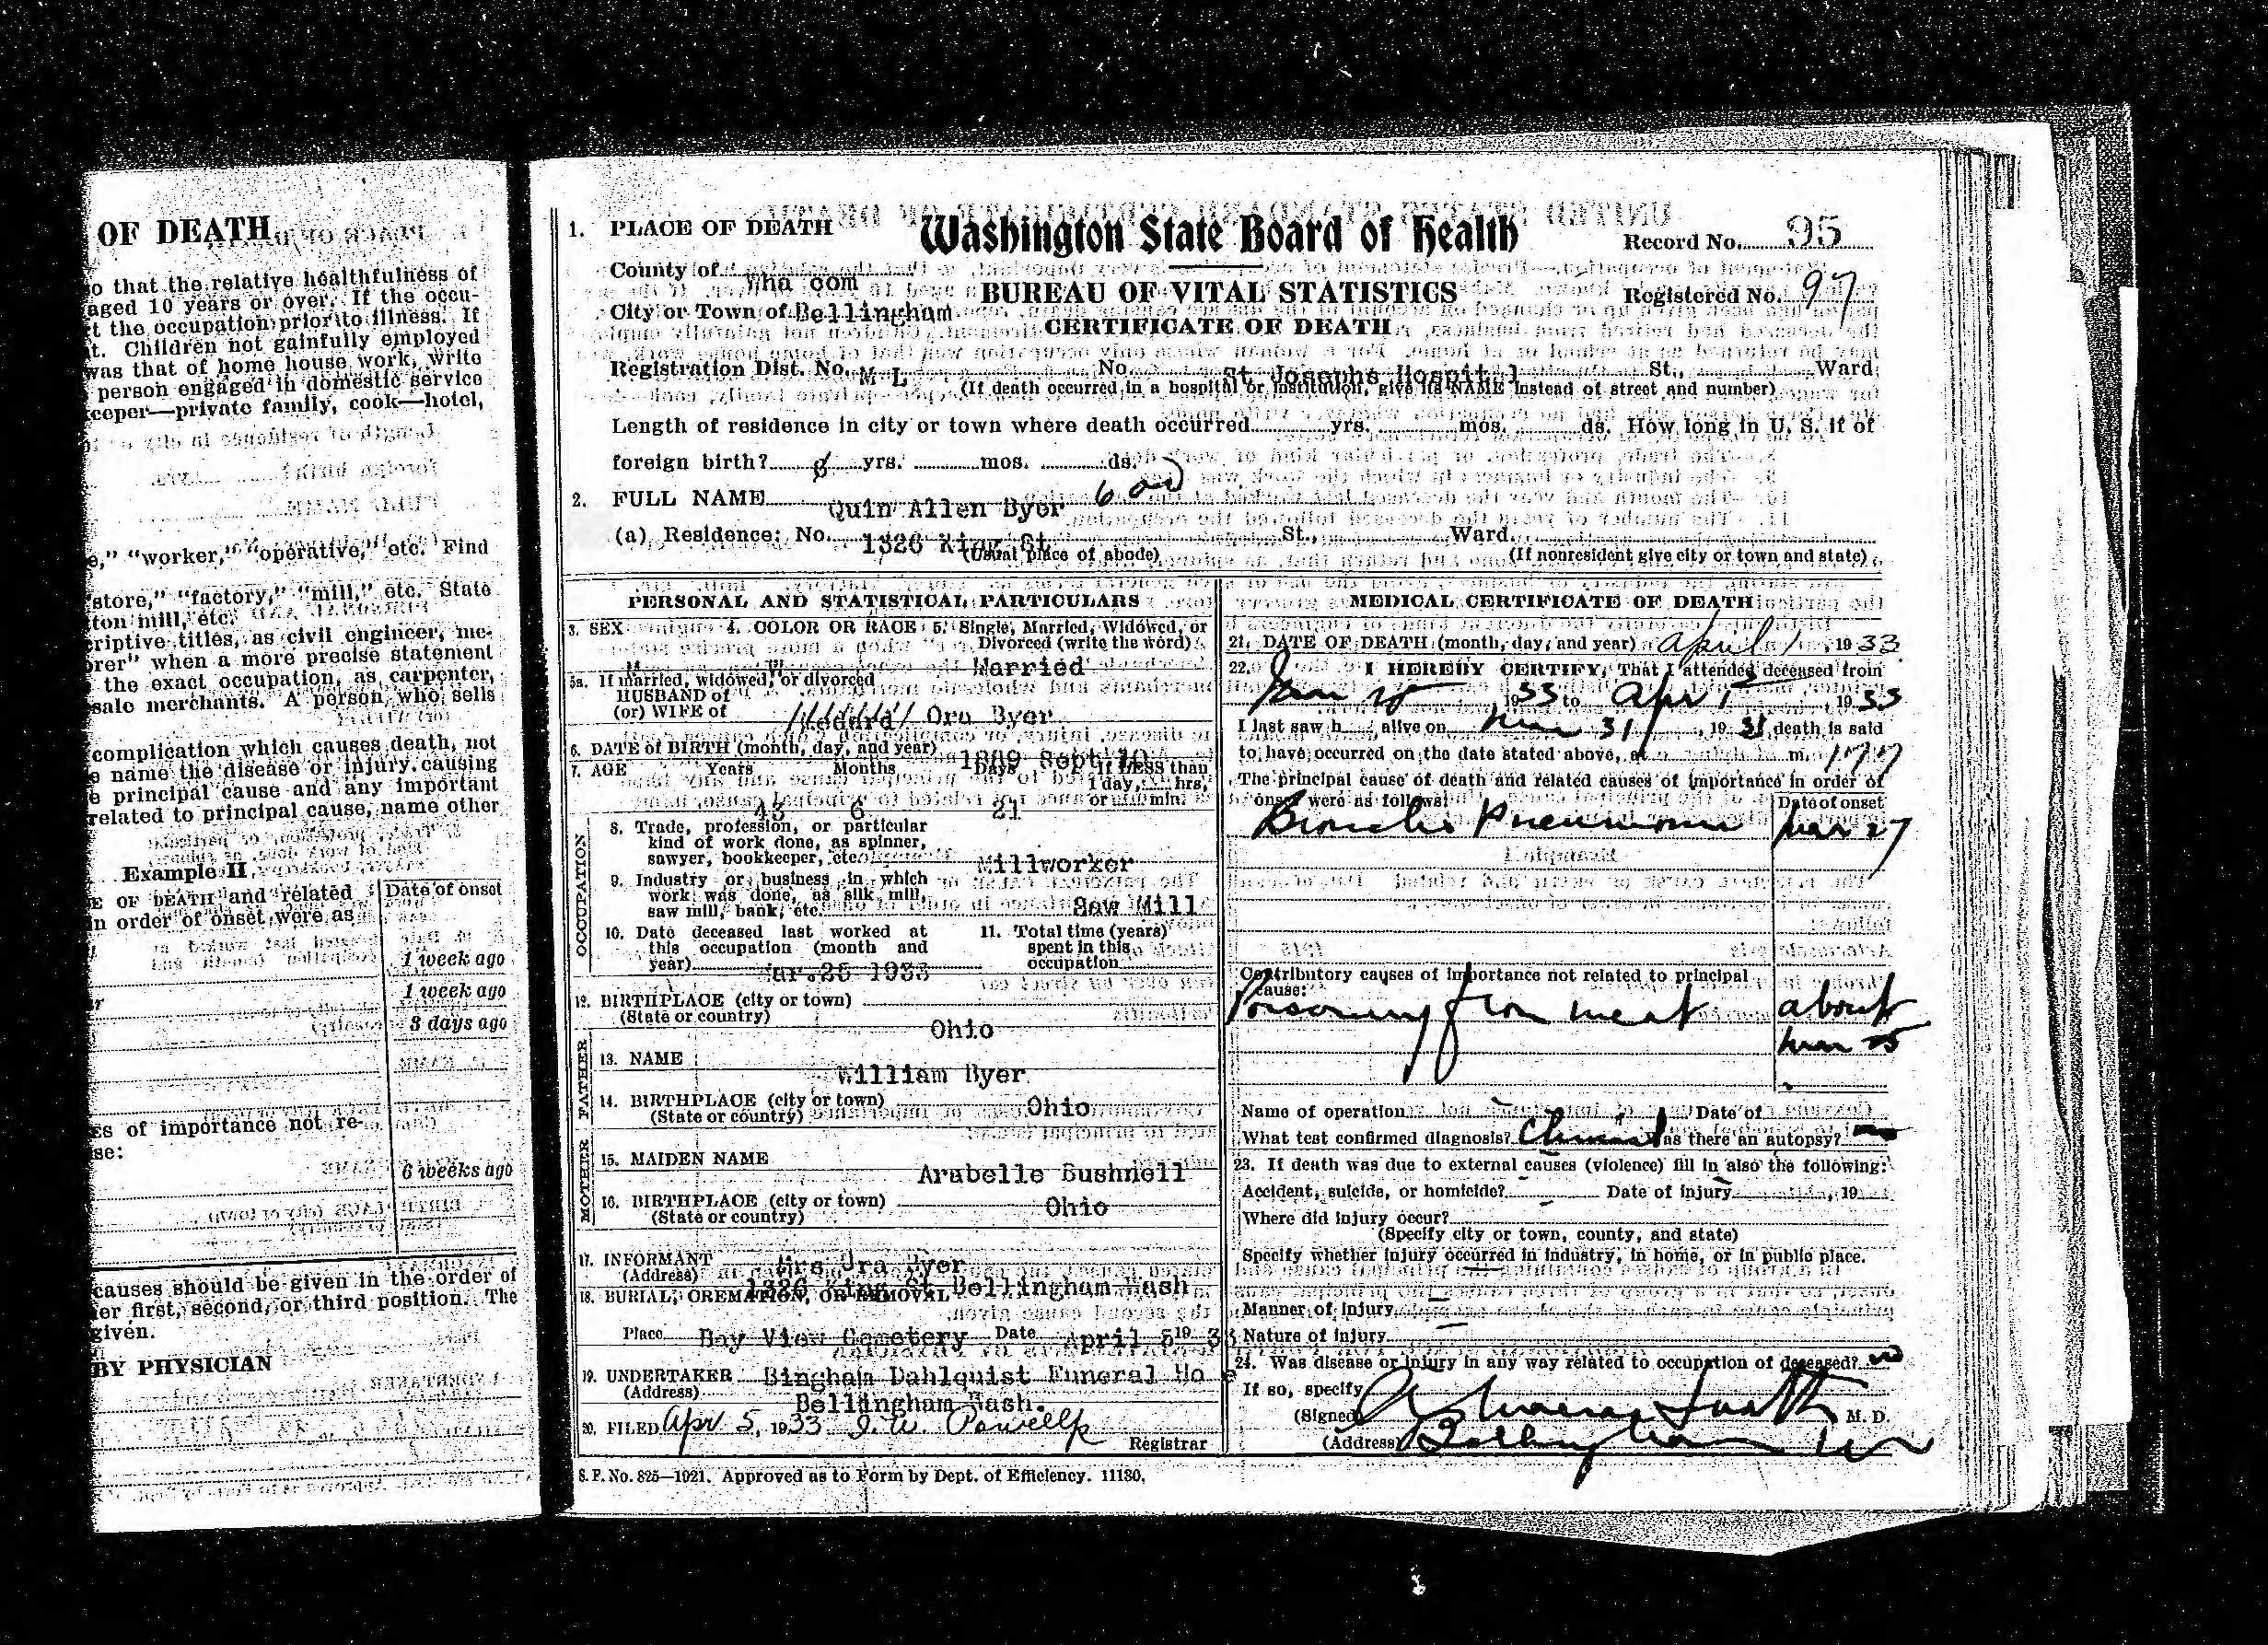 OF DEATH
o that the relative healthfulness of
aged 10 years or over. If the occu-
t the occupation prior to illness. If
t. Children not gainfully employed
was that of home house work, write
person engaged in domestic service
keeper—private family, cook—hotel,
e," "worker," "operative," etc. Find
"store," "factory," "mill," etc. State
ton mill, etc.
criptive titles, as civil engineer, me-
orer" when a more precise statement
the exact occupation, as carpenter,
sale merchants. A person who sells
complication which causes death, not
e name the disease or injury causing
e principal cause and any important
related to principal cause, name other
Example II
E OF DEATH and related Date of onset
n order of onset were as
1 week ago
r 1 week ago
3 days ago
es of importance not re-
se:
6 weeks ago
causes should be given in the order of
er first, second, or third position. The
given.
BY PHYSICIAN
1. PLACE OF DEATH Washington State Board of Health Record No. 95
County of Wha com
BUREAU OF VITAL STATISTICS Registered No. 97
City or Town of Bellingham
CERTIFICATE OF DEATH
Registration Dist. No. M L No. St. Josephs Hospital St., Ward
(If death occurred in a hospital or institution, give its NAME instead of street and number)
Length of residence in city or town where death occurred yrs. mos. ds. How long in U. S. if of
foreign birth? yrs. mos. ds.
2. FULL NAME Quin Allen Byer
(a) Residence: No. 1326 King St. St., Ward.
(Usual place of abode) (If nonresident give city or town and state)
PERSONAL AND STATISTICAL PARTICULARS
3. SEX 4. COLOR OR RACE 5. Single, Married, Widowed, or
Divorced (write the word)
Married
5a. If married, widowed, or divorced
HUSBAND of
(or) WIFE of Ora Byer
6. DATE of BIRTH (month, day, and year) 1889 Sept 10
7. AGE Years Months Days If LESS than
1 day, hrs,
or min.
43 6 21
OCCUPATION
8. Trade, profession, or particular
kind of work done, as spinner,
sawyer, bookkeeper, etc. Millworker
9. Industry or business in which
work was done, as silk mill,
saw mill, bank, etc. Saw Mill
10. Date deceased last worked at 11. Total time (years)
this occupation (month and spent in this
year) Mar. 25 1933 occupation
12. BIRTHPLACE (city or town)
(State or country) Ohio
FATHER
13. NAME William Byer
14. BIRTHPLACE (city or town) Ohio
(State or country)
MOTHER
15. MAIDEN NAME Arabelle Bushnell
16. BIRTHPLACE (city or town) Ohio
(State or country)
17. INFORMANT Mrs Ora Byer
(Address) 1326 King St Bellingham Wash
18. BURIAL, CREMATION, OR REMOVAL
Place Bay View Cemetery Date April 5 19 3
19. UNDERTAKER Bingham Dahlquist Funeral Ho e
(Address) Bellingham Wash.
20. FILED Apr 5, 1933 Registrar
S. F. No. 825—1921. Approved as to Form by Dept. of Efficiency. 11130.
MEDICAL CERTIFICATE OF DEATH
21. DATE OF DEATH (month, day, and year) April 1 1933
22. I HEREBY CERTIFY, That I attended deceased from
1933 to Apr 1, 1933
I last saw h alive on Mar 31, 19 death is said
to have occurred on the date stated above, at m.
The principal cause of death and related causes of importance in order of
onset were as follows: Date of onset
Broncho Pneumonia Mar 27
Contributory causes of importance not related to principal
cause:
Poisoning from meat about
Mar 25
Name of operation Date of
What test confirmed diagnosis? Clinical Was there an autopsy?
23. If death was due to external causes (violence) fill in also the following:
Accident, suicide, or homicide? Date of injury , 19
Where did injury occur?
(Specify city or town, county, and state)
Specify whether injury occurred in industry, in home, or in public place.
Manner of injury
Nature of injury
24. Was disease or injury in any way related to occupation of deceased? no
If so, specify
(Signed) M. D.
(Address) Bellingham